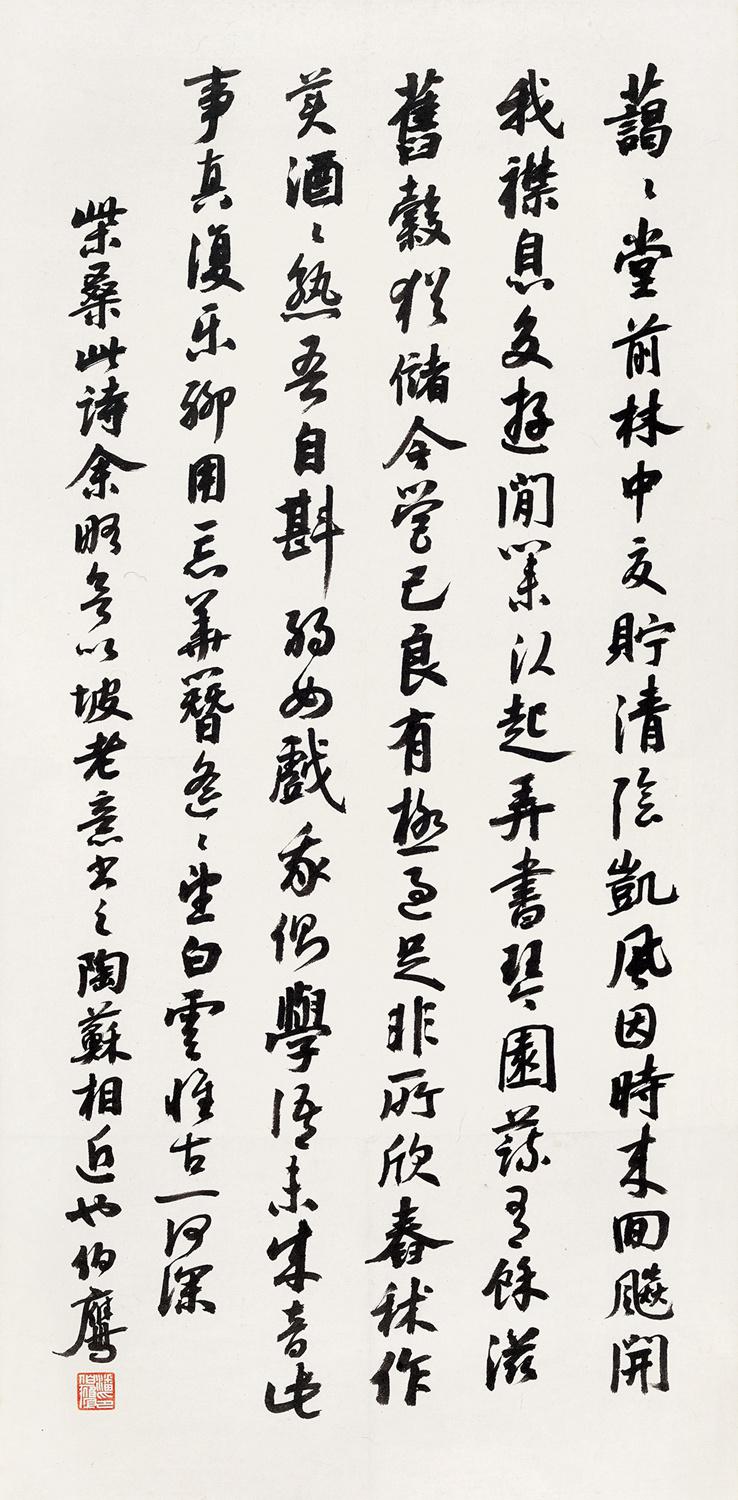 藹〻堂前林中夏貯清陰凱風因時来囬飈開
我襟息交遊閒業臥起弄書琴園蔬有餘滋
舊穀猶儲今營己良有極過足非所欣舂秫作
美酒〻熟吾自斟弱女戲我側學語未成音此
事真復乐聊用忘華簪遙〻望白雲懷古一何深
柴桑此詩余略參以坡老意書之陶蘇相近也伯鷹
潘印伯鷹